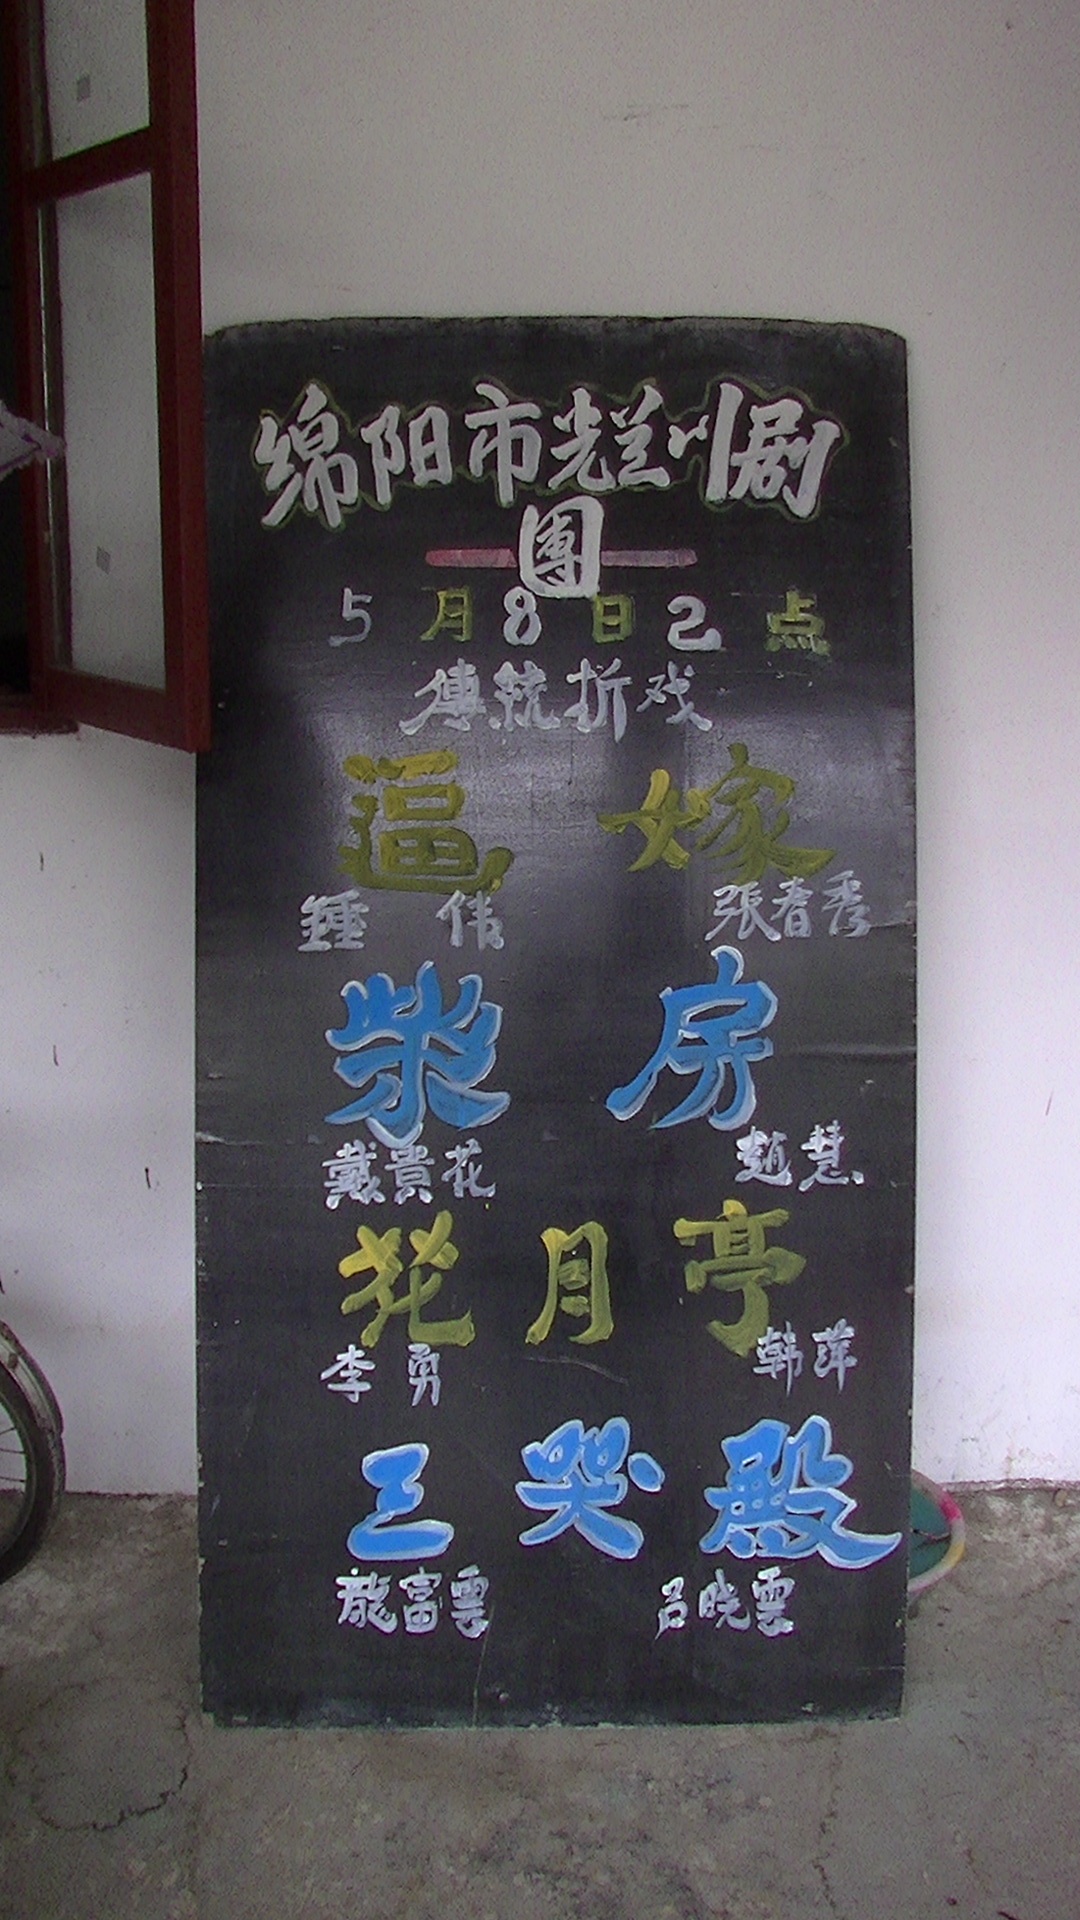 绵阳市光兰川剧
團
5月8日2点
傳統折戏
逼嫁
鍾伟 張春秀
柴房
戴貴花 趙慧
花月亭
李勇 韩萍
三哭殿
龍富雲 吕晓雲